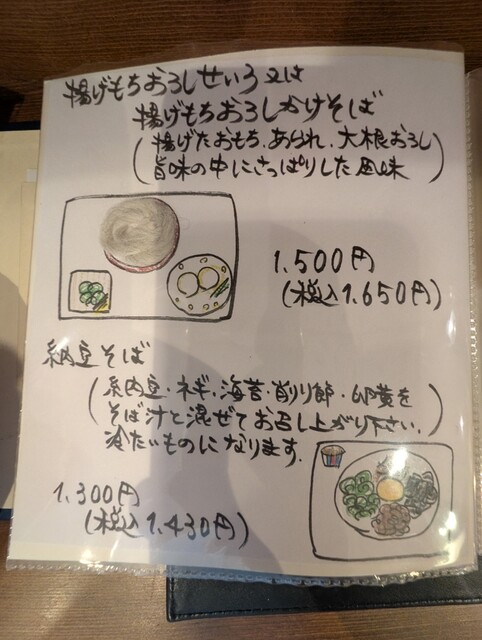 揚げもちおろしせいろ又は
揚げもちおろしかけそば
(揚げたおもち、あられ、大根おろし
旨味の中にさっぱりした風味)
1.500円
(税込1.650円)
納豆そば
(納豆・ネギ・海苔・削り節・卵黄を
そば汁と混ぜてお召し上がり下さい.
冷たいものになります.)
1.300円
(税込1.430円)